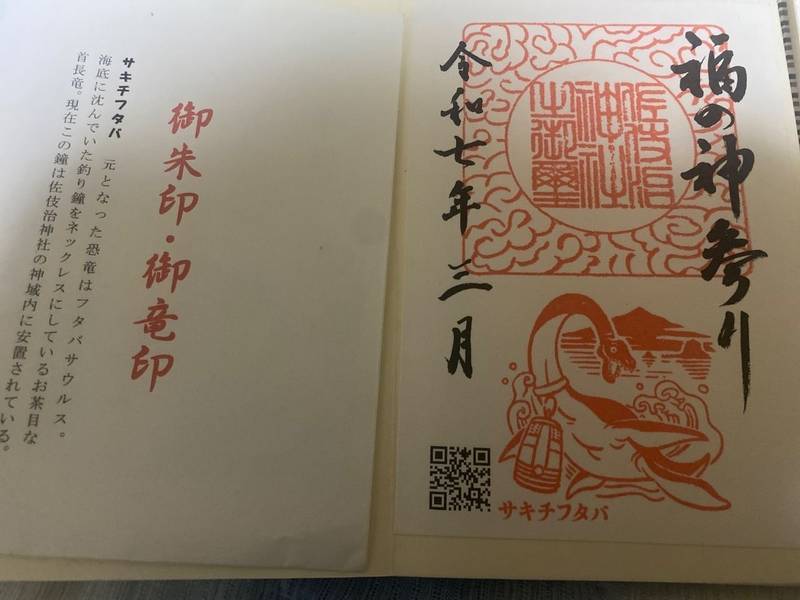 福の神参り
佐伎治
神社
之御璽
令和七年三月
サキチフタバ
御朱印・御竜印
サキチフタバ 元となった恐竜はフタバサウルス。
海底に沈んでいた釣り鐘をネックレスにしているお茶目な
首長竜。現在この鐘は佐伎治神社の神域内に安置されている。